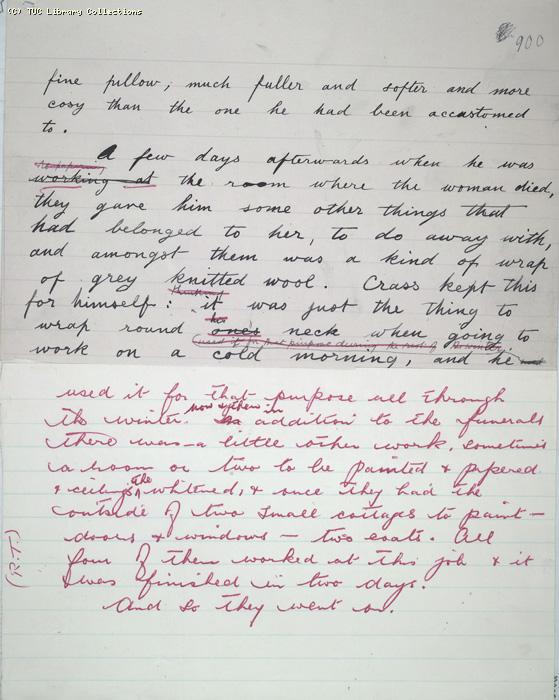 (C) TUC Library Collections
900
fine pillow, much fuller and softer and more
cosy than the one he had been accustomed
to.
A few days afterwards when he was
working at the room where the woman died,
they gave him some other things that
had belonged to her, to do away with,
and amongst them was a kind of wrap
of grey knitted wool. Crass kept this
for himself: it was just the thing to
his
wrap round one's neck when going to
used it for that purpose during the rest of the winter.
work on a cold morning, and he
used it for that purpose all through
now & then in
the winter. In addition to the funerals
there was a little other work, sometimes
a room or two to be painted & papered
the
& ceilings whitened, & once they had the
outside of two small cottages to paint -
doors & windows - two coats. All
four of them worked at this job & it
was finished in two days.
And so they went on.
(R.T.)